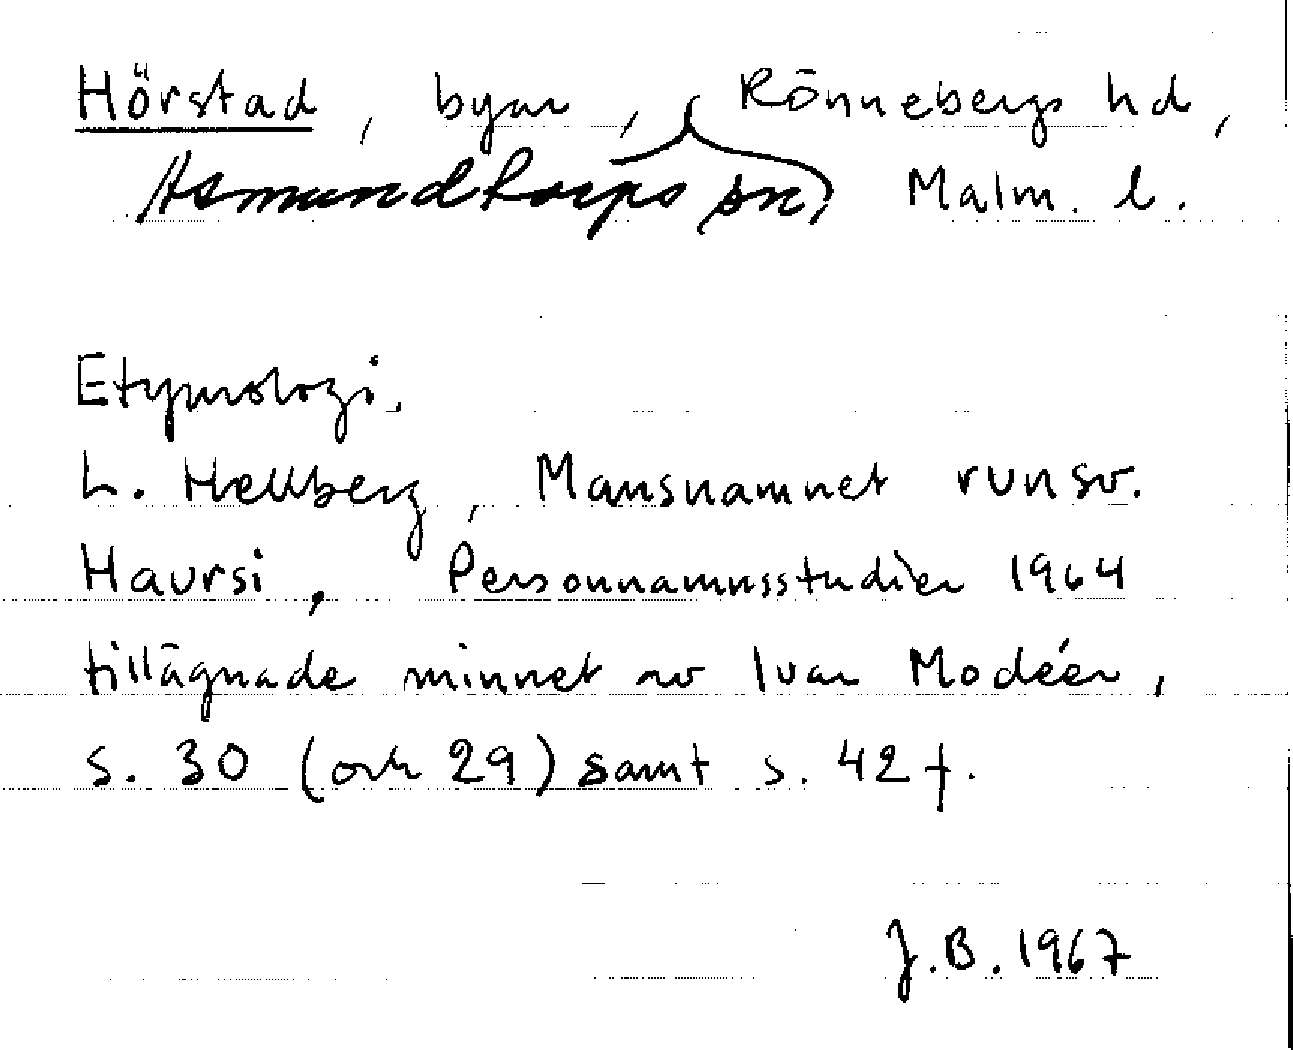 Hörstad, byar, Rönnebergs hd,
Asmundtorps sn, Malm. l.
Etymologi.
L. Hellberg, Mansnamnet runsv.
Haursi, Personnamnsstudier 1964
tillägnade minnet av Ivar Modéer,
s. 30 (och 29) samt s. 42 f.
J.B. 1967